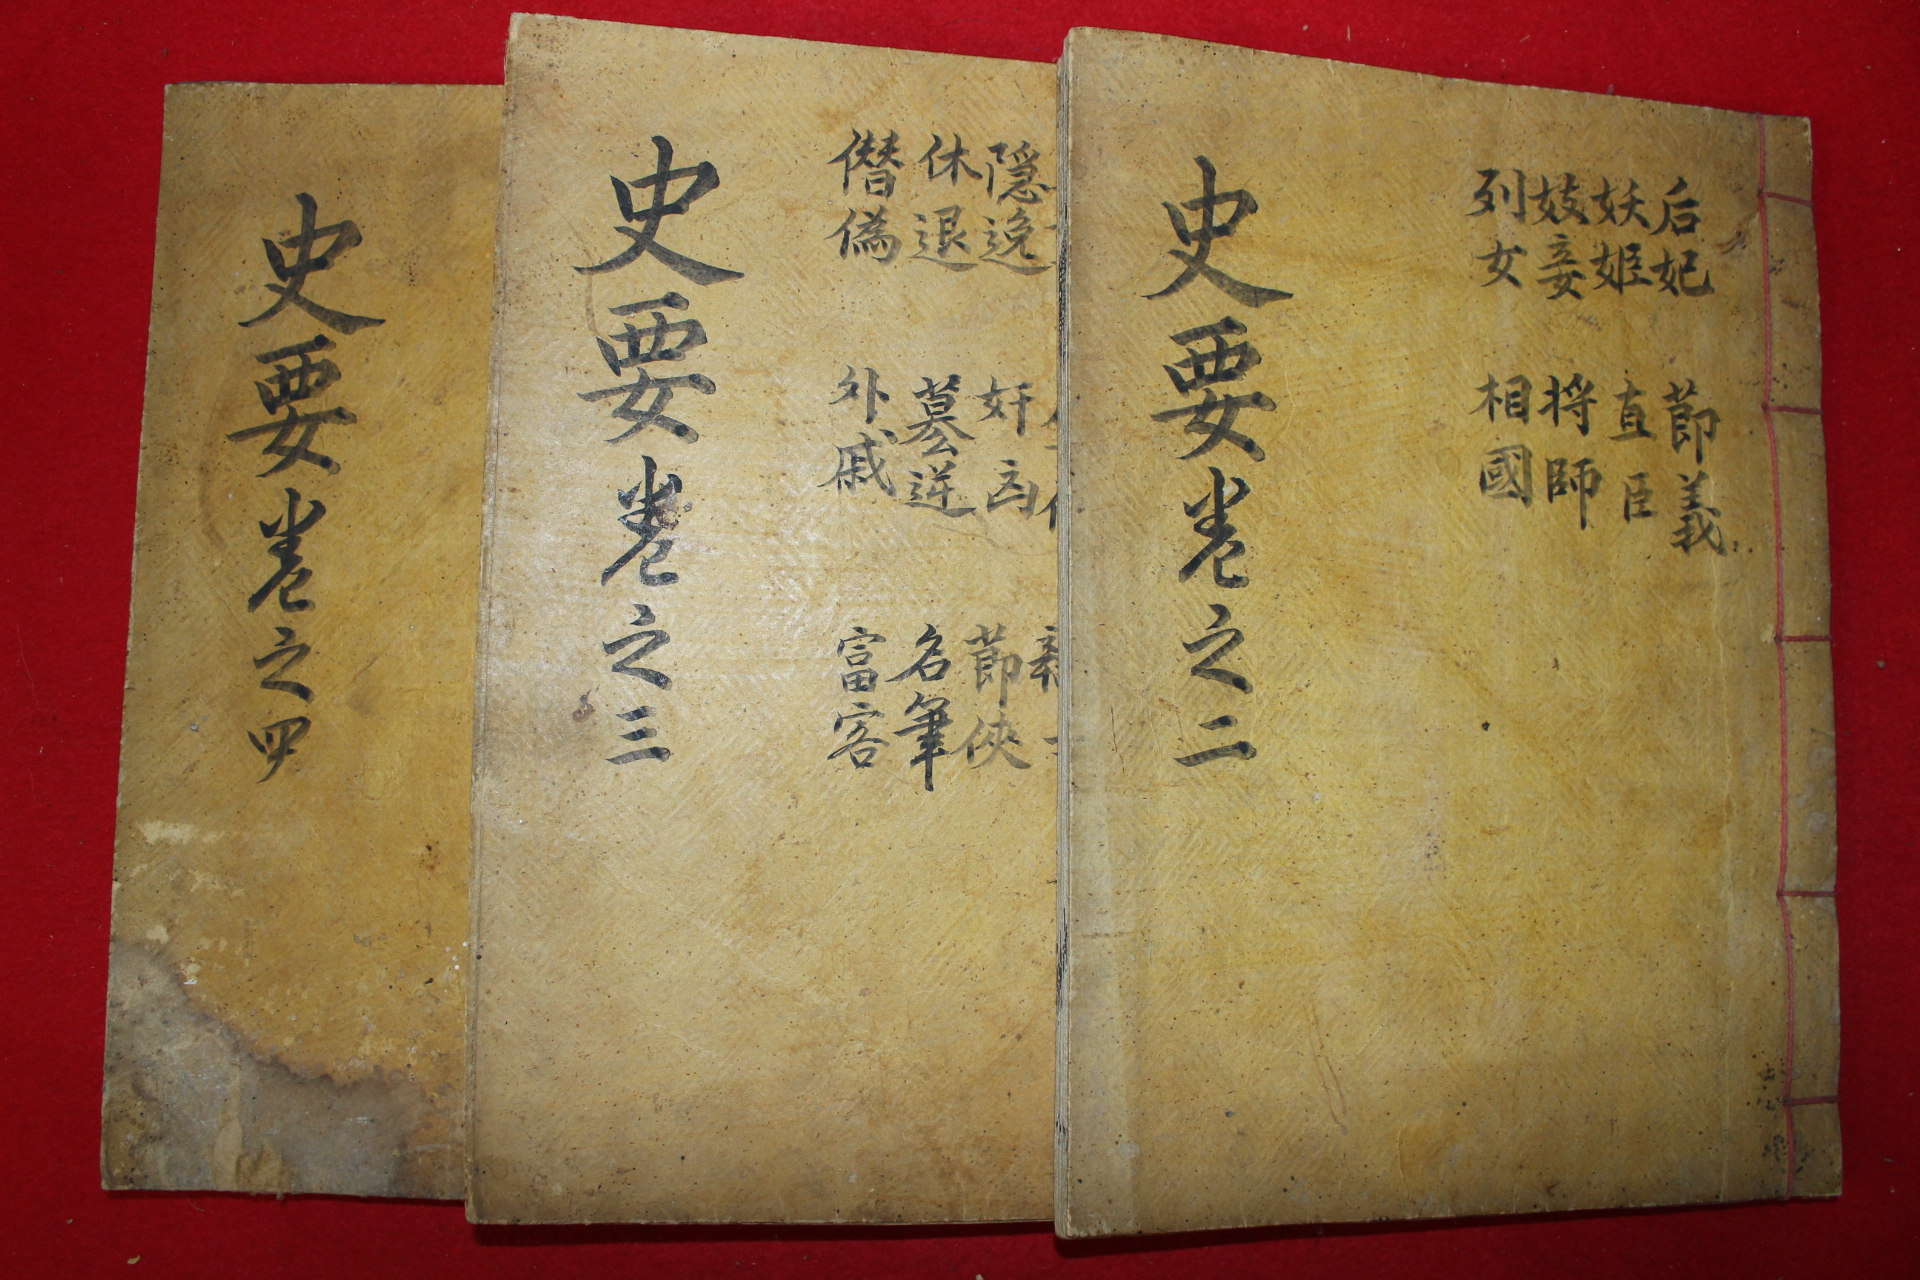 后妃
妖姬
妓妾
列女
節義
直臣
将師
相國
史要卷之二
隠逸
休退
僭僞
奸凶
簒逆
外戚
節俠
名筆
富客
史要卷之三
史要卷之四